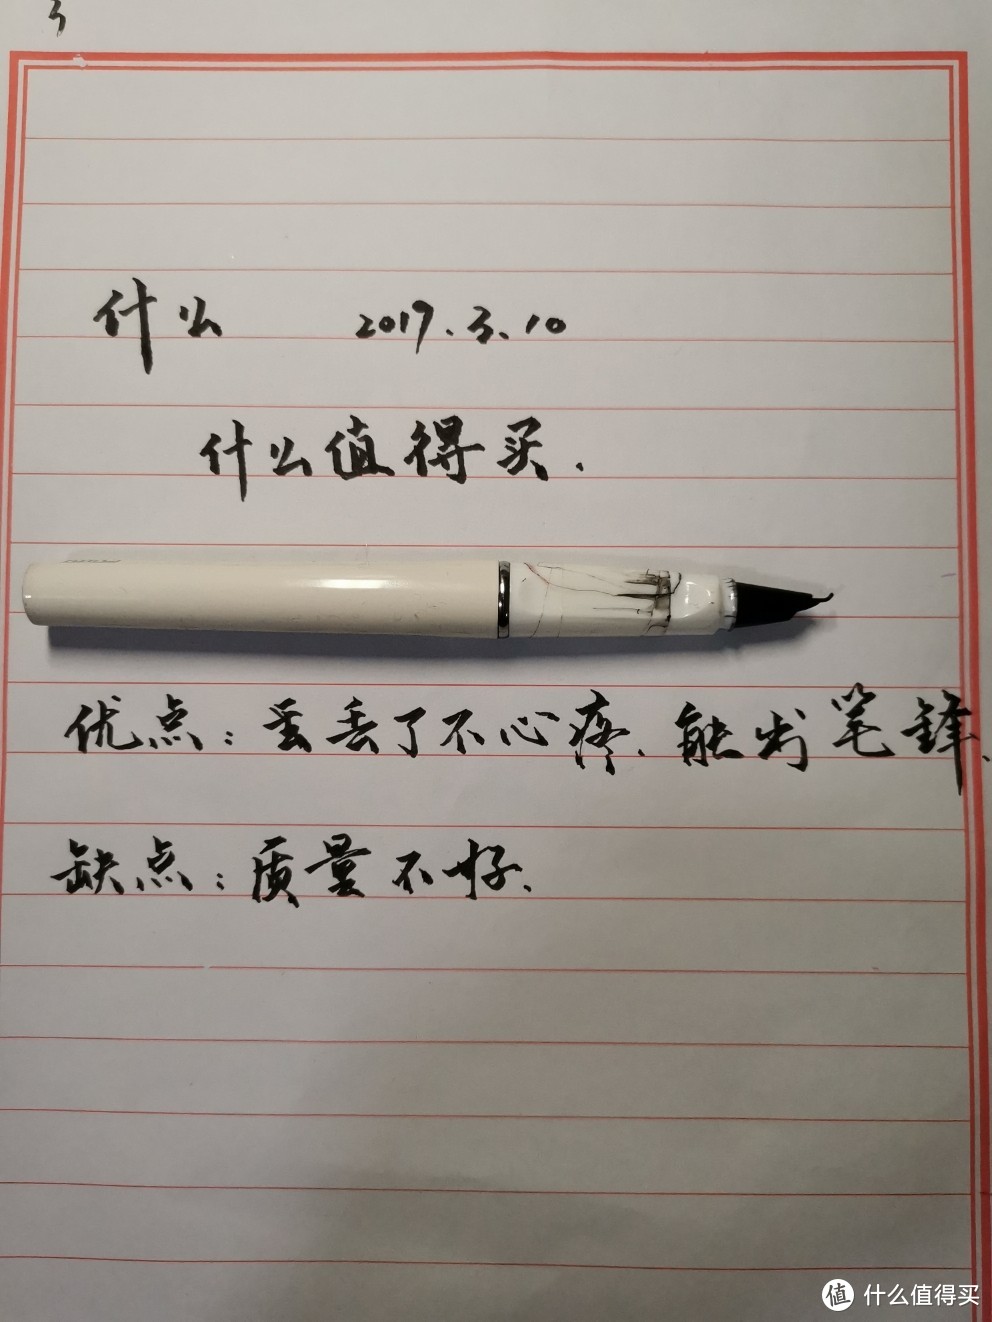 什么 2019.3.10
什么值得买.
优点：丢丢了不心疼.能出笔锋、
缺点：质量不好、
值 什么值得买